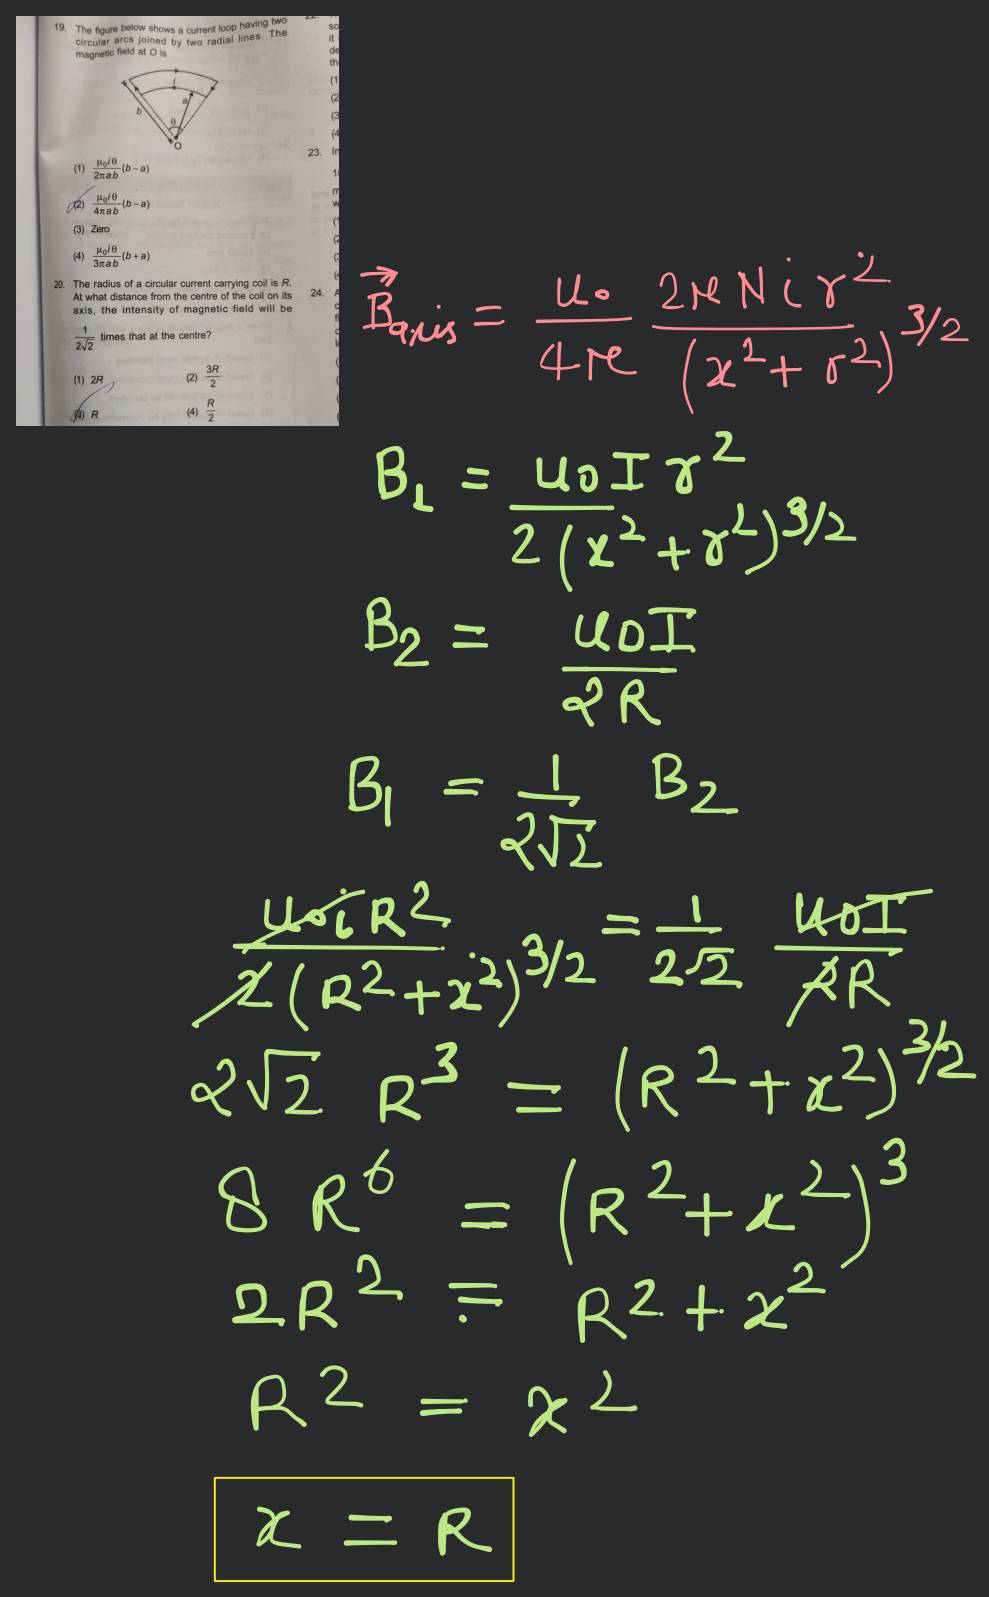 19. The figure below shows a current loop having two
circular arcs joined by two radial lines. The
magnetic field at O is
i
a
b
θ
O
(1) μ₀iθ/2πab (b – a)
(2) μ₀iθ/4πab (b – a)
(3) Zero
(4) μ₀iθ/3πab (b + a)
20. The radius of a circular current carrying coil is R.
At what distance from the centre of the coil on its
axis, the intensity of magnetic field will be
1/2√2 times that at the centre?
(1) 2R (2) 3R/2
(3) R (4) R/2
so
it
de
th
(1
(2
(3
(4
23. In
24. A
B⃗axis = u₀/4π 2πNir²/(x² + r²)^3/2
B₁ = u₀Ir²/2(x² + r²)^3/2
B₂ = u₀I/2R
B₁ = 1/2√2 B₂
u₀iR²/2(R² + x²)^3/2 = 1/2√2 u₀I/2R
2√2 R³ = (R² + x²)^3/2
8 R⁶ = (R² + x²)³
2R² = R² + x²
R² = x²
x = R